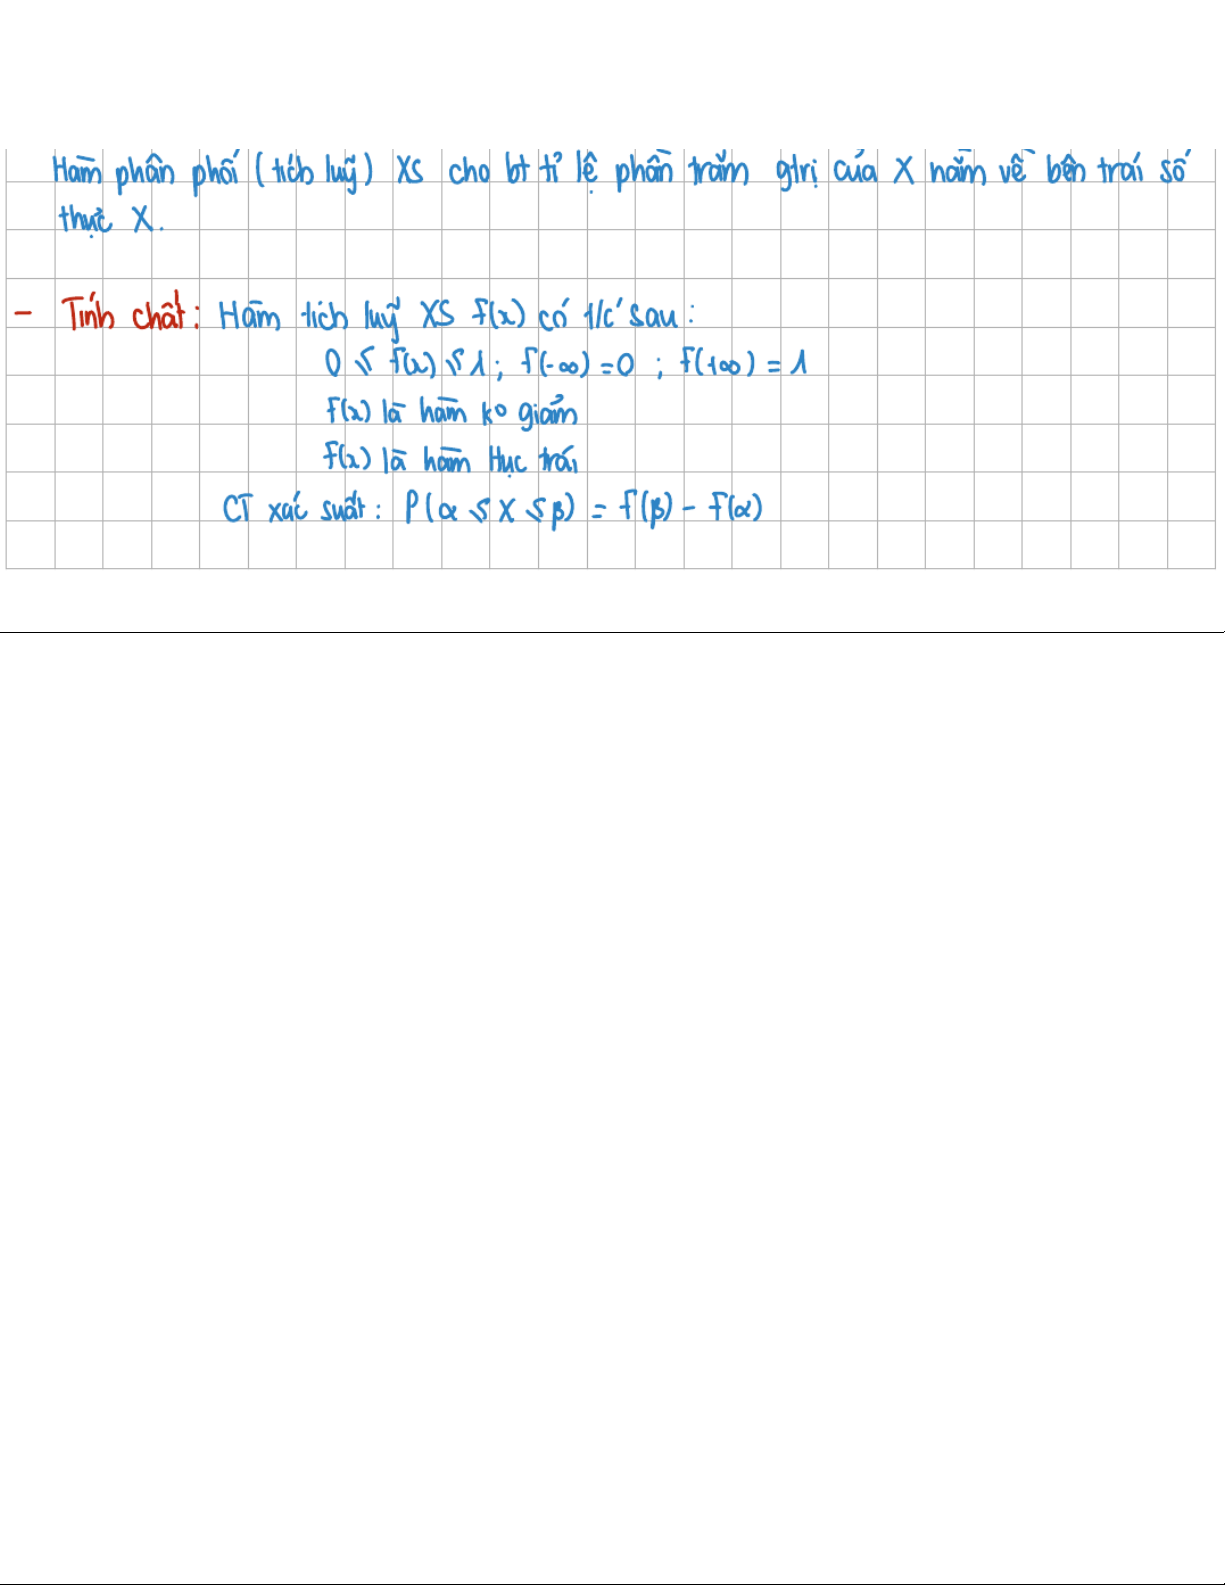 Hàm phân phối (tích luỹ) XS cho bt tỉ lệ phần trăm gtrị của X nằm về bên trái số
thực X.
- Tính chất: Hàm tích luỹ XS F(x) có t/c sau:
0 ≤ F(x) ≤ 1; F(-∞) = 0 ; F(+∞) = 1
F(x) là hàm ko giảm
F(x) là hàm ltục trái
CT xác suất: P(α ≤ X ≤ β) = F(β) - F(α)